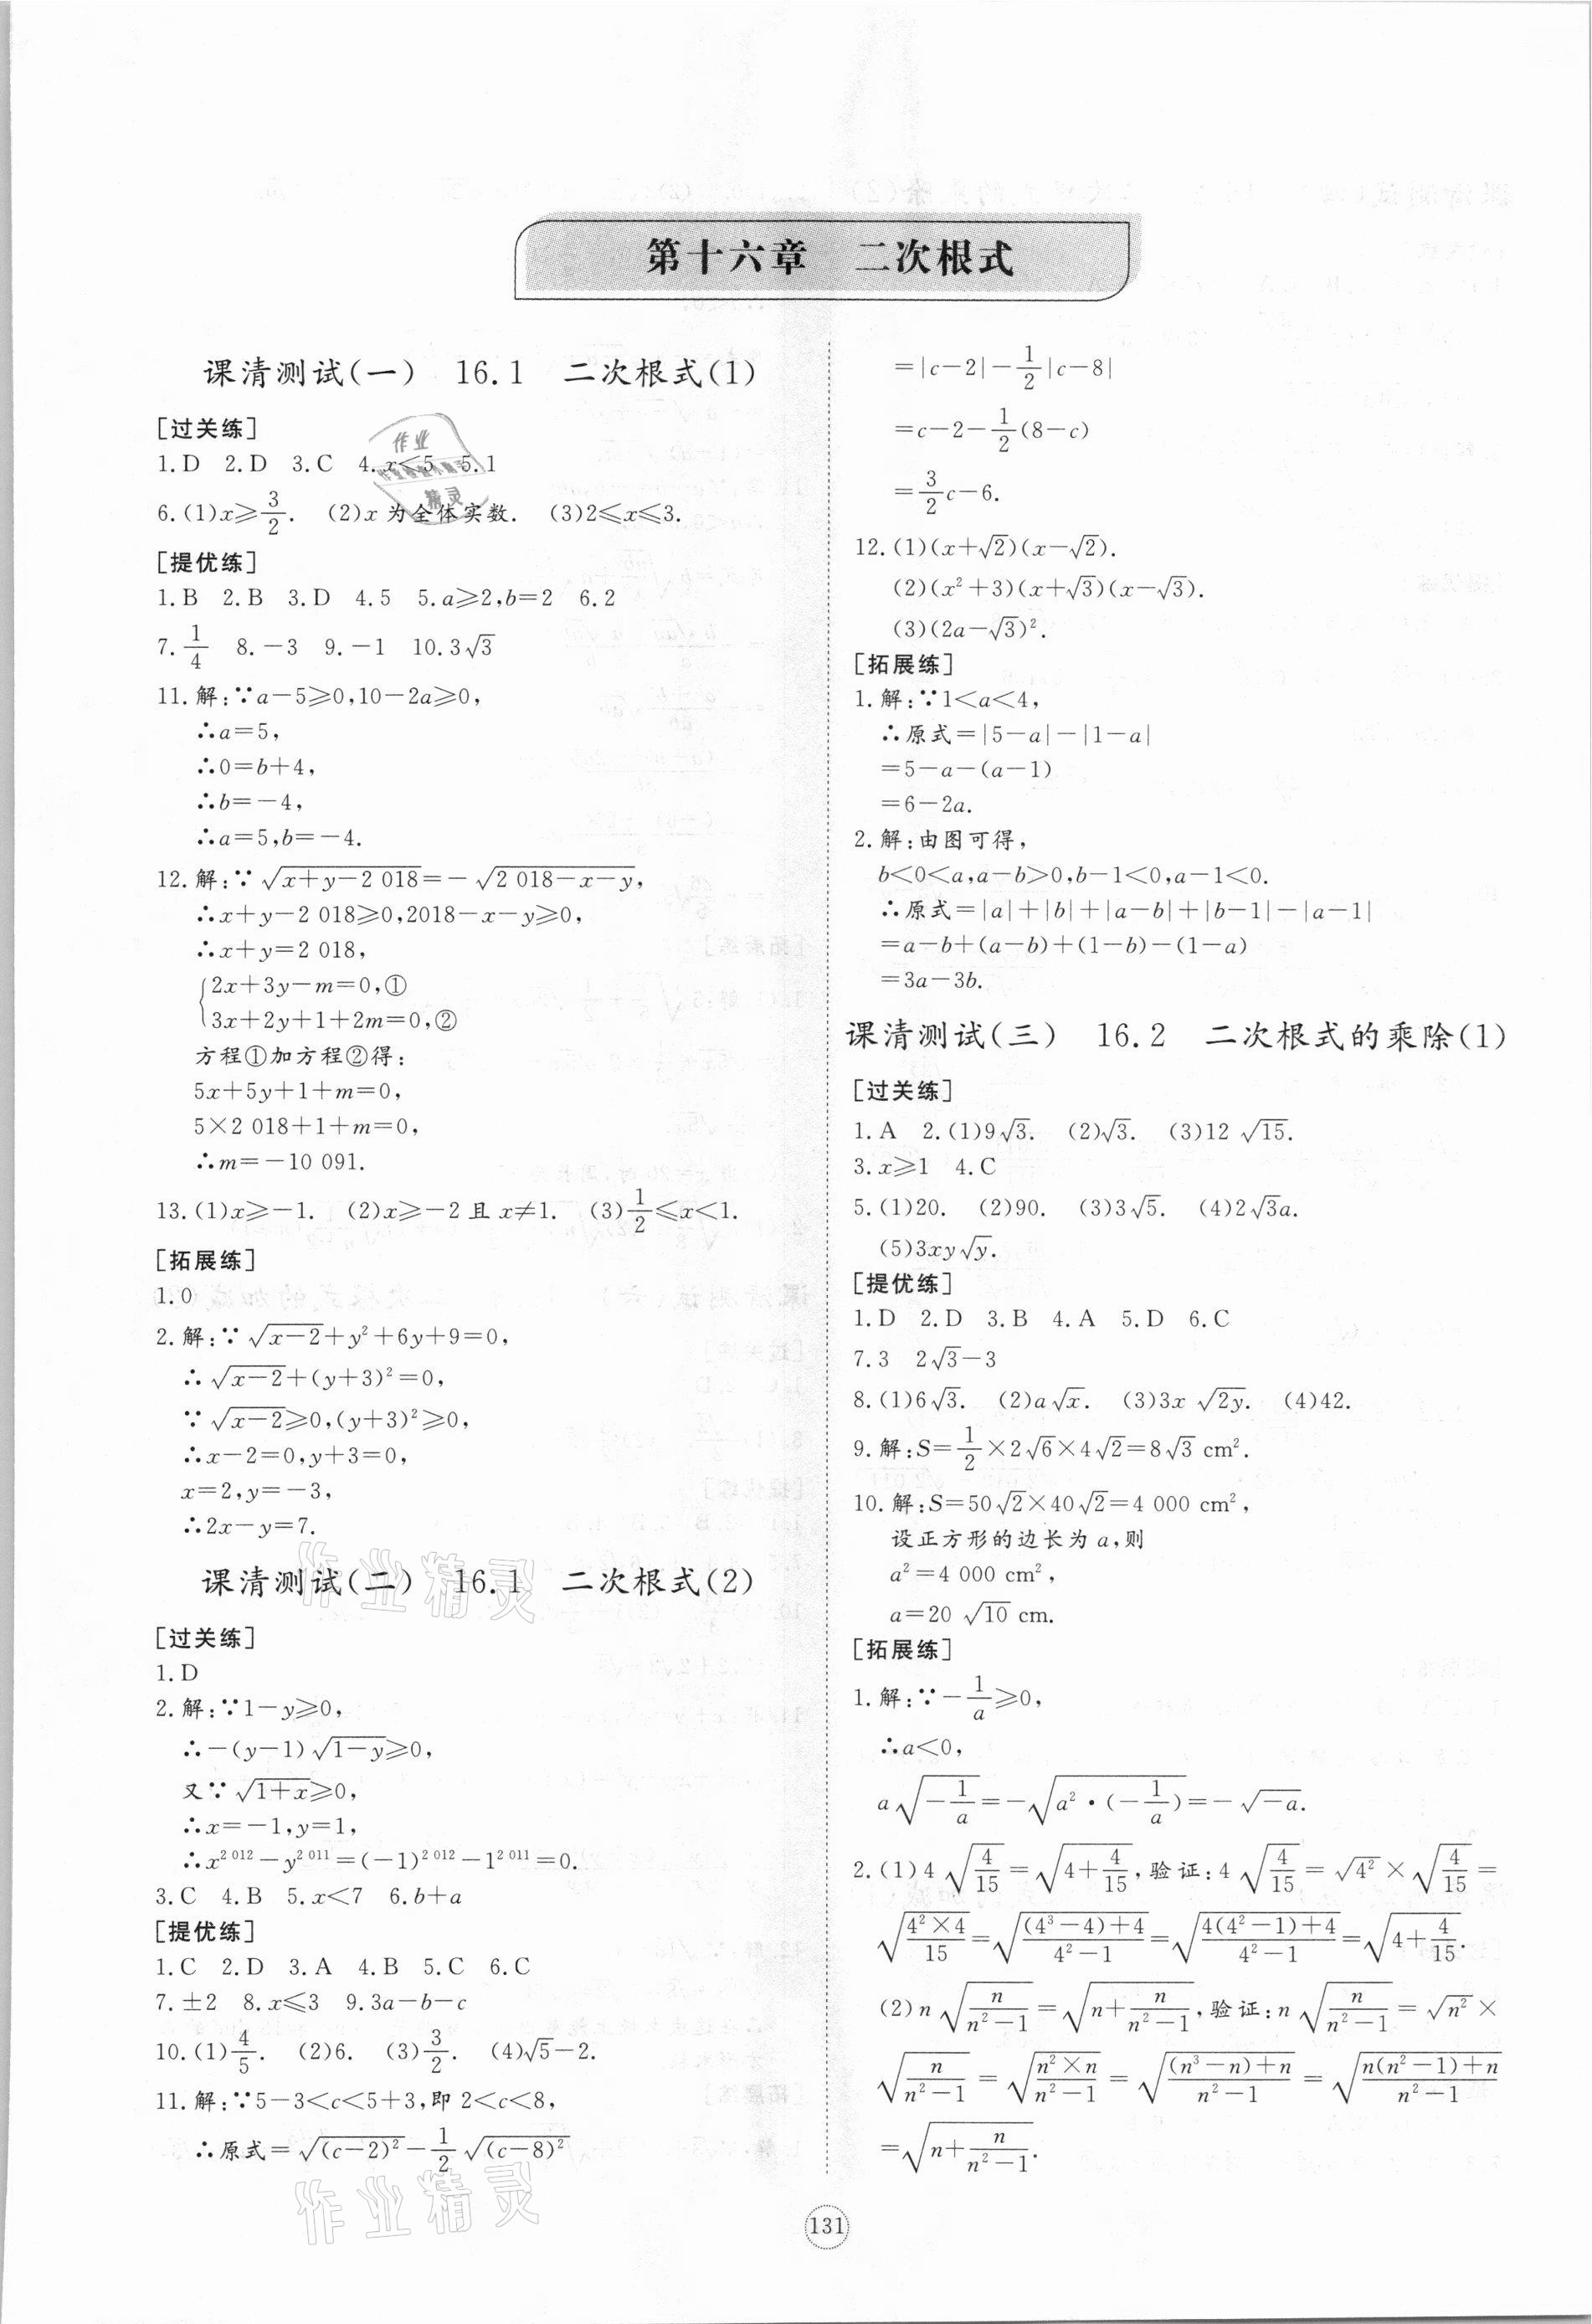 第十六章 二次根式
课清测试(一) 16.1 二次根式(1)
[过关练]
1.D 2.D 3.C 4.x<5 5.1
6.(1)x≥3/2. (2)x为全体实数. (3)2≤x≤3.
[提优练]
1.B 2.B 3.D 4.5 5.a≥2,b=2 6.2
7.1/4 8.-3 9.-1 10.3√3
11.解:∵a-5≥0,10-2a≥0,
∴a=5,
∴0=b+4,
∴b=-4,
∴a=5,b=-4.
12.解:∵√(x+y-2 018)=-√(2 018-x-y),
∴x+y-2 018≥0,2018-x-y≥0,
∴x+y=2 018,
{2x+3y-m=0,①
3x+2y+1+2m=0,②
方程①加方程②得:
5x+5y+1+m=0,
5×2 018+1+m=0,
∴m=-10 091.
13.(1)x≥-1. (2)x≥-2且x≠1. (3)1/2≤x<1.
[拓展练]
1.0
2.解:∵√(x-2)+y²+6y+9=0,
∴√(x-2)+(y+3)²=0,
∵√(x-2)≥0,(y+3)²≥0,
∴x-2=0,y+3=0,
x=2,y=-3,
∴2x-y=7.
课清测试(二) 16.1 二次根式(2)
[过关练]
1.D
2.解:∵1-y≥0,
∴-(y-1)√(1-y)≥0,
又∵√(1+x)≥0,
∴x=-1,y=1,
∴x^2 012-y^2 011=(-1)^2 012-1^2 011=0.
3.C 4.B 5.x<7 6.b+a
[提优练]
1.C 2.D 3.A 4.B 5.C 6.C
7.±2 8.x≤3 9.3a-b-c
10.(1)4/5. (2)6. (3)3/2. (4)√5-2.
11.解:∵5-3<c<5+3,即2<c<8,
∴原式=√((c-2)²)-1/2√((c-8)²)
=|c-2|-1/2|c-8|
=c-2-1/2(8-c)
=3/2c-6.
12.(1)(x+√2)(x-√2).
(2)(x²+3)(x+√3)(x-√3).
(3)(2a-√3)².
[拓展练]
1.解:∵1<a<4,
∴原式=|5-a|-|1-a|
=5-a-(a-1)
=6-2a.
2.解:由图可得,
b<0<a,a-b>0,b-1<0,a-1<0.
∴原式=|a|+|b|+|a-b|+|b-1|-|a-1|
=a-b+(a-b)+(1-b)-(1-a)
=3a-3b.
课清测试(三) 16.2 二次根式的乘除(1)
[过关练]
1.A 2.(1)9√3. (2)√3. (3)12√15.
3.x≥1 4.C
5.(1)20. (2)90. (3)3√5. (4)2√3a.
(5)3xy√y.
[提优练]
1.D 2.D 3.B 4.A 5.D 6.C
7.3 2√3-3
8.(1)6√3. (2)a√x. (3)3x√(2y). (4)42.
9.解:S=1/2×2√6×4√2=8√3 cm².
10.解:S=50√2×40√2=4 000 cm²,
设正方形的边长为a,则
a²=4 000 cm²,
a=20√10 cm.
[拓展练]
1.解:∵-1/a≥0,
∴a<0,
a√(-1/a)=-√(a²·(-1/a))=-√(-a).
2.(1)4√(4/15)=√(4+4/15),验证:4√(4/15)=√(4²)×√(4/15)=
√((4²×4)/15)=√(((4³-4)+4)/(4²-1))=√((4(4²-1)+4)/(4²-1))=√(4+4/15).
(2)n√(n/(n²-1))=√(n+n/(n²-1)),验证:n√(n/(n²-1))=√(n²)×
√(n/(n²-1))=√((n²×n)/(n²-1))=√(((n³-n)+n)/(n²-1))=√((n(n²-1)+n)/(n²-1))
=√(n+n/(n²-1)).
131
作业精灵
作业精灵